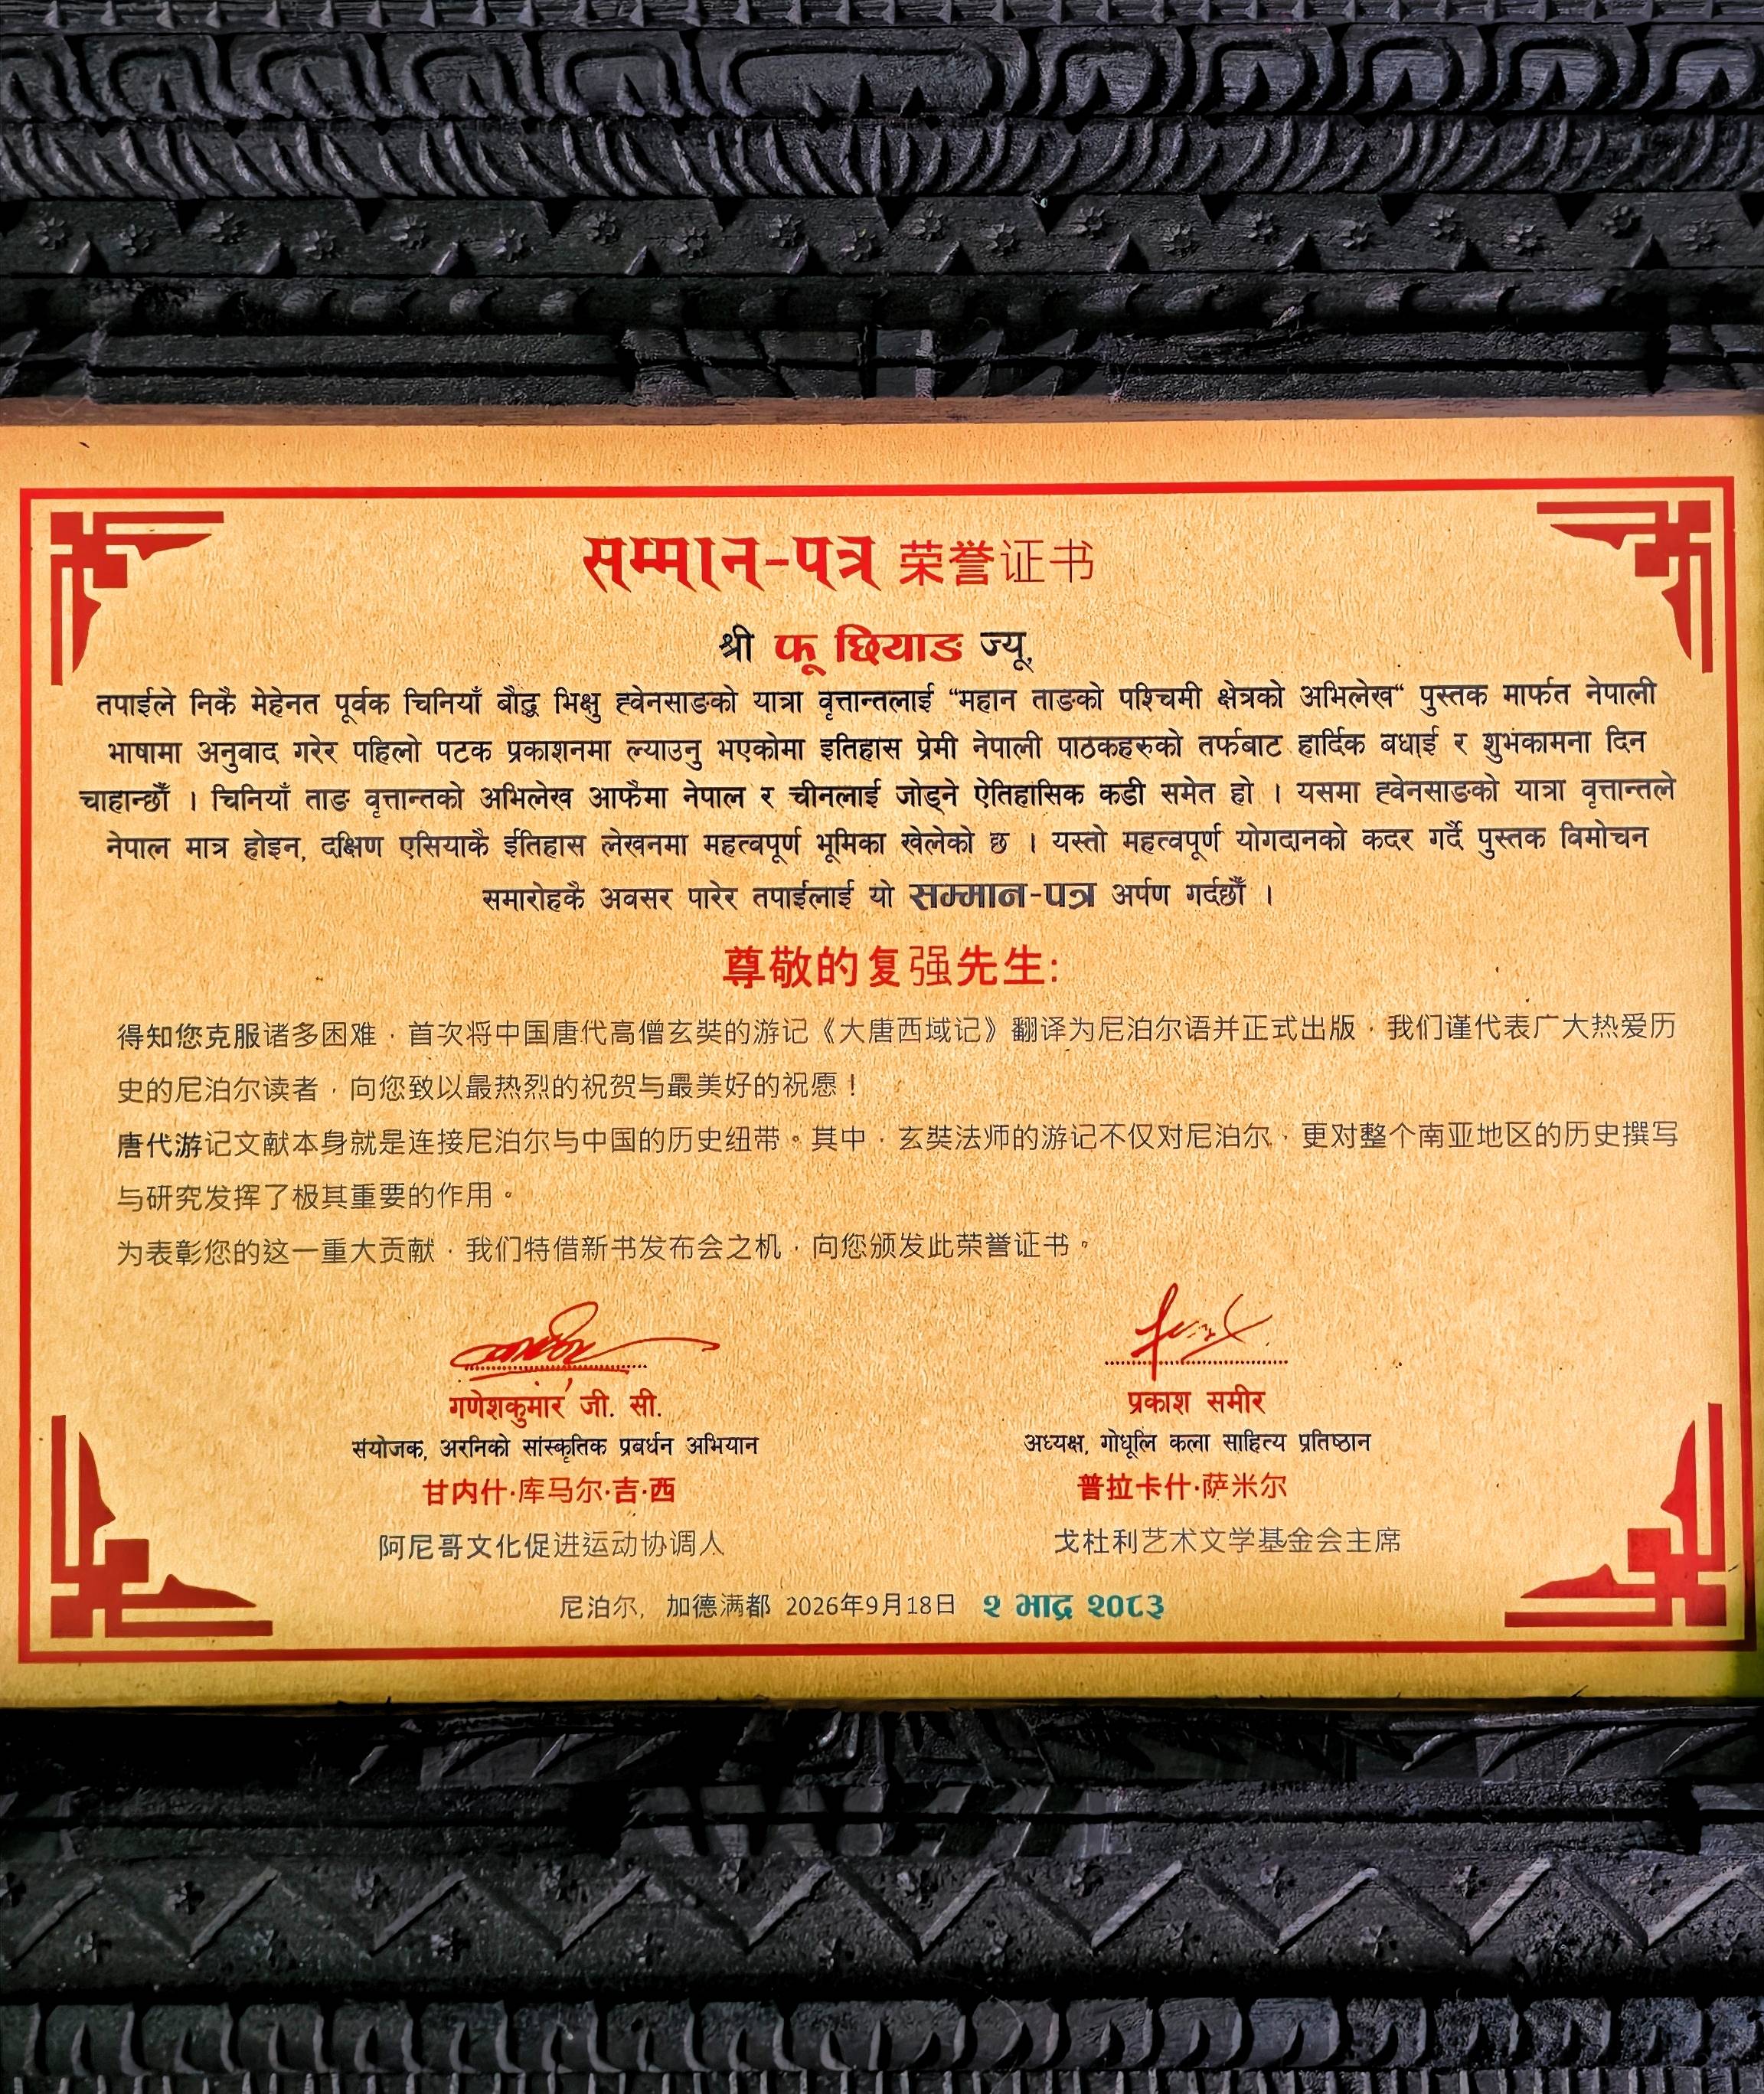 सम्मान-पत्र 荣誉证书
श्री फू छियाङ ज्यू,
तपाईले निकै मेहेनत पूर्वक चिनियाँ बौद्ध भिक्षु ह्वेनसाङको यात्रा वृत्तान्तलाई “महान ताङको पश्चिमी क्षेत्रको अभिलेख“ पुस्तक मार्फत नेपाली
भाषामा अनुवाद गरेर पहिलो पटक प्रकाशनमा ल्याउनु भएकोमा इतिहास प्रेमी नेपाली पाठकहरुको तर्फबाट हार्दिक बधाई र शुभकामना दिन
चाहान्छौँ । चिनियाँ ताङ वृत्तान्तको अभिलेख आफैमा नेपाल र चीनलाई जोड्ने ऐतिहासिक कडी समेत हो । यसमा ह्वेनसाङको यात्रा वृत्तान्तले
नेपाल मात्र होइन, दक्षिण एसियाकै ईतिहास लेखनमा महत्वपूर्ण भूमिका खेलेको छ । यस्तो महत्वपूर्ण योगदानको कदर गर्दै पुस्तक विमोचन
समारोहकै अवसर पारेर तपाईलाई यो सम्मान-पत्र अर्पण गर्दछौँ ।
尊敬的复强先生:
得知您克服诸多困难，首次将中国唐代高僧玄奘的游记《大唐西域记》翻译为尼泊尔语并正式出版，我们谨代表广大热爱历
史的尼泊尔读者，向您致以最热烈的祝贺与最美好的祝愿！
唐代游记文献本身就是连接尼泊尔与中国的历史纽带。其中，玄奘法师的游记不仅对尼泊尔，更对整个南亚地区的历史撰写
与研究发挥了极其重要的作用。
为表彰您的这一重大贡献，我们特借新书发布会之机，向您颁发此荣誉证书。
गणेशकुमार जी. सी. प्रकाश समीर
संयोजक, अरनिको सांस्कृतिक प्रबर्धन अभियान अध्यक्ष, गोधूलि कला साहित्य प्रतिष्ठान
甘内什·库马尔·吉·西 普拉卡什·萨米尔
阿尼哥文化促进运动协调人 戈杜利艺术文学基金会主席
尼泊尔, 加德满都 2026年9月18日 २ भाद्र २०८३